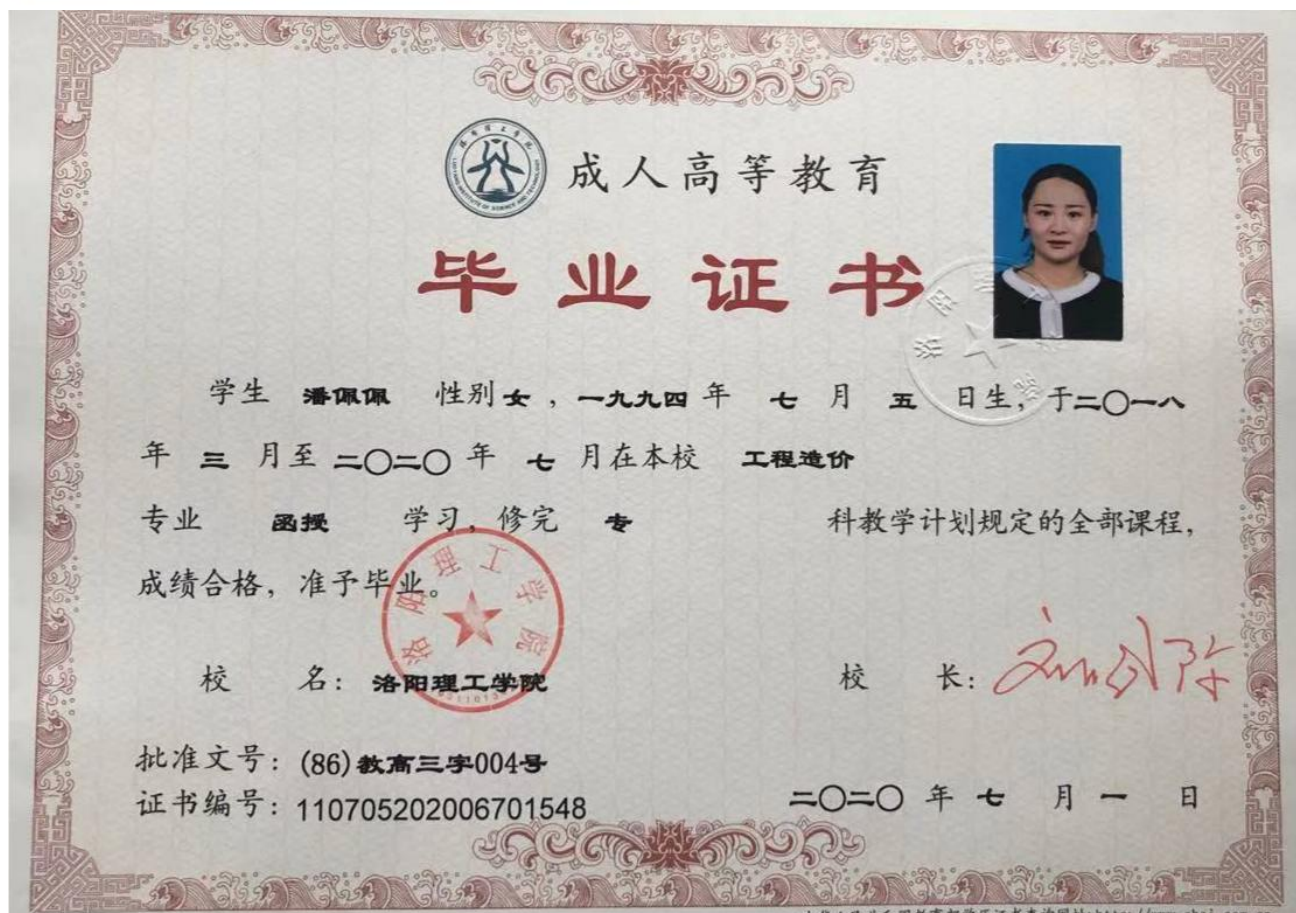 成人高等教育
毕业证书
学生 潘佩佩 性别 女 ，一九九四 年 七 月 五 日生，于二〇一八
年 三 月至 二〇二〇 年 七 月在本校 工程造价
专业 函授 学习，修完 专 科教学计划规定的全部课程，
成绩合格，准予毕业。
洛阳理工学院
校 名：洛阳理工学院
校 长：
批准文号：(86)教高三字004号
证书编号：110705202006701548
二〇二〇 年 七 月 一 日